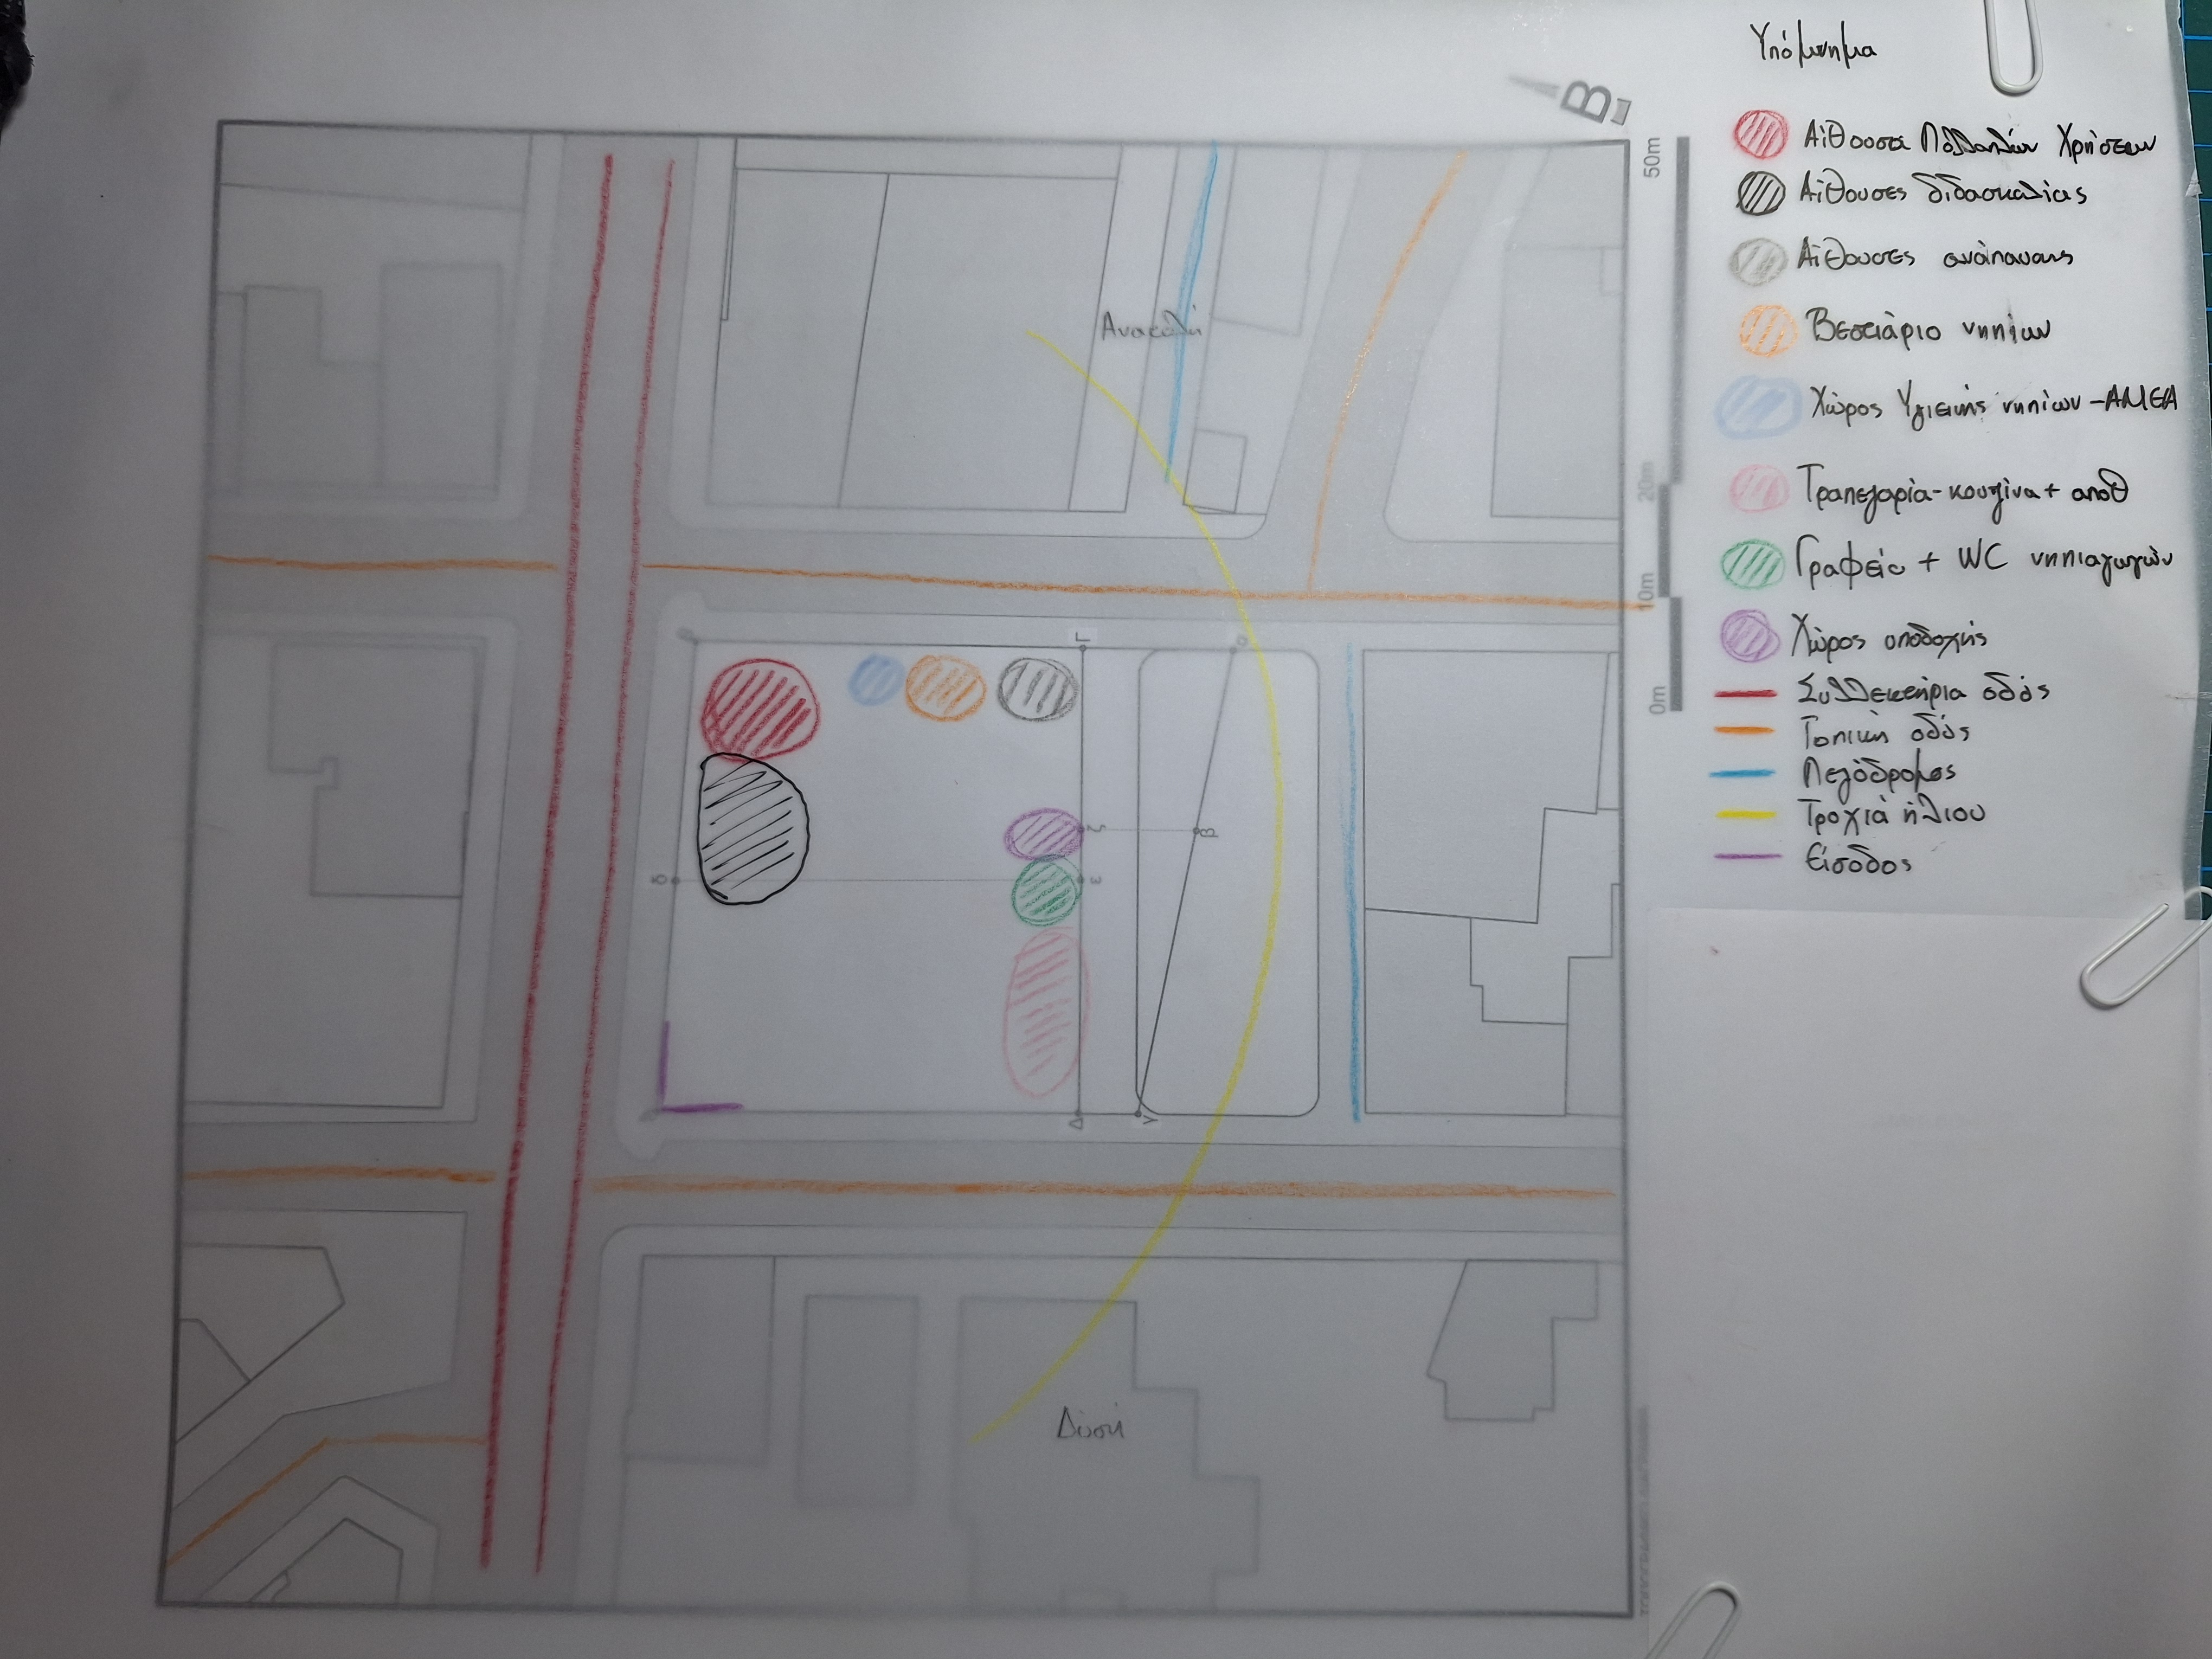 Υπόμνημα
Αίθουσα Πολλαπλών Χρήσεων
Αίθουσες διδασκαλίας
Αίθουσες ανάπαυσης
Βεστιάριο νηπίων
Χώρος Υγιεινής νηπίων - ΑΜΕΑ
Τραπεζαρία - κουζίνα + αποθ
Γραφείο + WC νηπιαγωγών
Χώρος υποδοχής
Συλλεκτήρια οδός
Τοπική οδός
Πεζόδρομος
Τροχιά ήλιου
Είσοδος
Β
50m
20m
10m
0m
Ανατολή
Γ
α
ζ
β
δ
ε
Δ
γ
Δύση